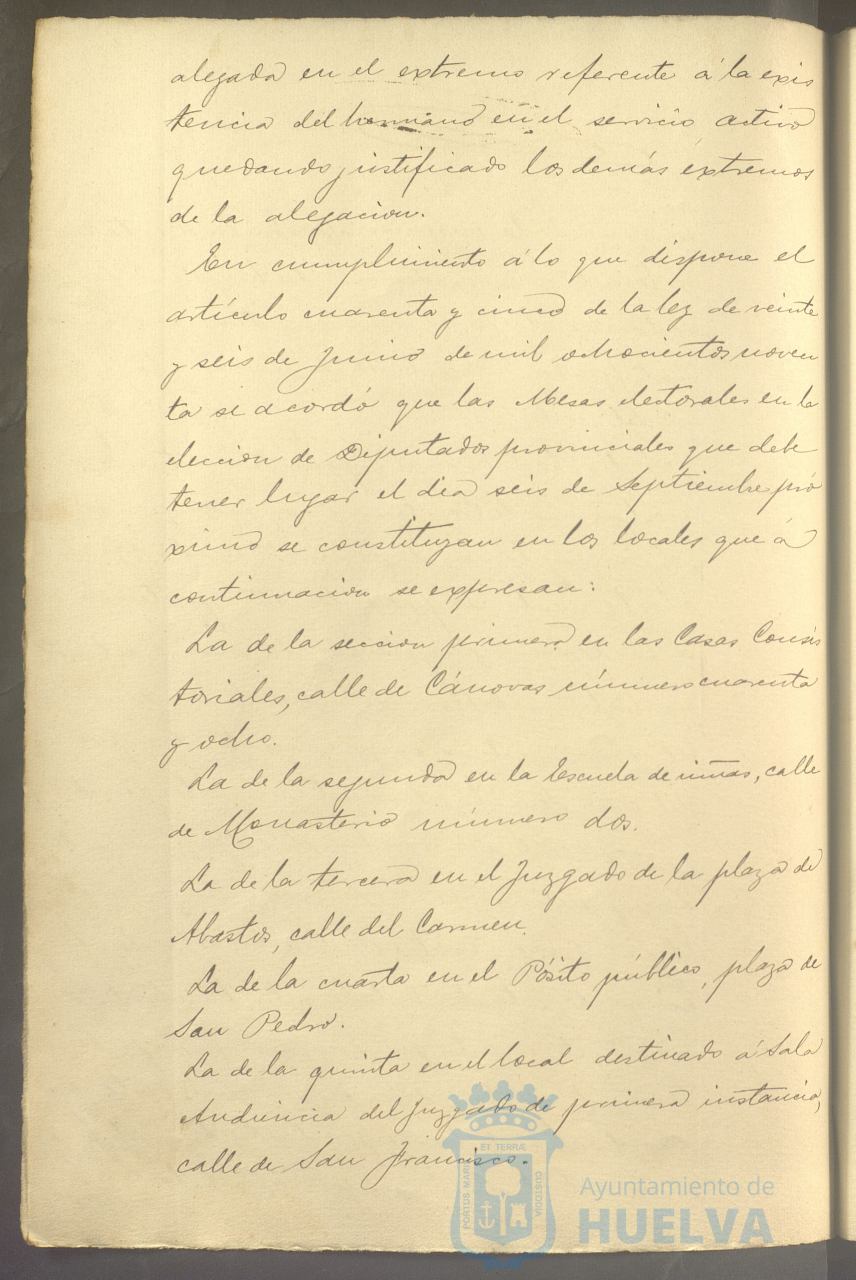 alegada en el extremo referente á la exis
tencia del hermano en el servicio activo
quedando justificado los demás extremos
de la alegacion.
En cumplimiento á lo que dispone el
artículo cuarenta y cinco de la ley de veinte
y seis de Junio de mil ochocientos noven
ta se acordó que las Mesas electorales en la
eleccion de Diputados provinciales que debe
tener lugar el dia seis de Septiembre pró
ximo se constituyan en los locales que á
continuacion se expresan:
La de la seccion primera en las Casas Consis
toriales, calle de Cánovas número cuarenta
y ocho.
La de la segunda en la Escuela de niñas, calle
de Monasterio número dos.
La de la tercera en el Juzgado de la plaza de
Abastos, calle del Carmen.
La de la cuarta en el Pósito público, plaza de
San Pedro.
La de la quinta en el local destinado á Sala
Audiencia del Juzgado de primera instancia,
calle de San Francisco.
PORTUS MARIS ET TERRÆ CUSTODIA
Ayuntamiento de
HUELVA